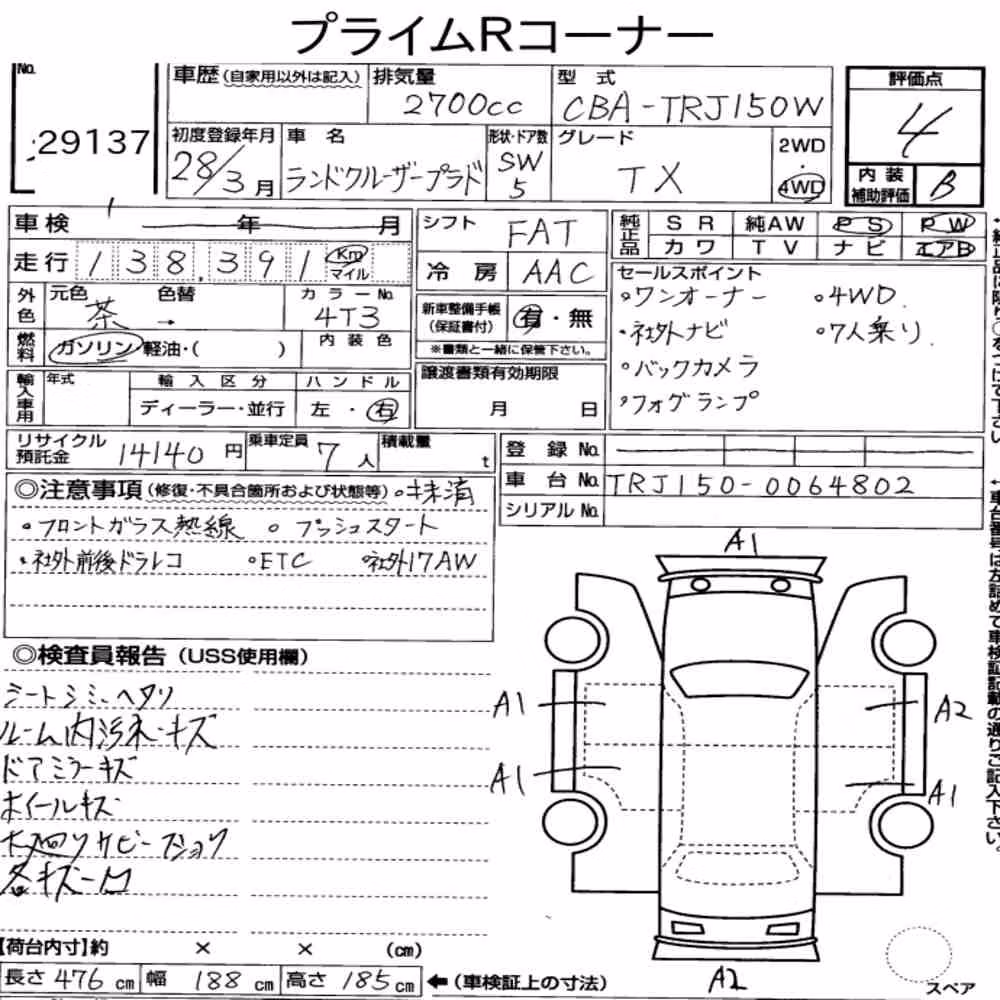 プライムRコーナー
No.
29137
車歴 (自家用以外は記入)
排気量
2700cc
型式
CBA-TRJ150W
評価点
4
初度登録年月
28/3月
車名
ランドクルーザープラド
形状・ドア数
SW
5
グレード
TX
2WD
・
4WD
内装
補助評価
B
車検 年 月
シフト
FAT
純正品
SR 純AW PS PW
カワ TV ナビ エアB
走行 138,391 Km
マイル
冷房 AAC
セールスポイント
・ワンオーナー ・4WD
・社外ナビ ・7人乗り
・バックカメラ
・フォグランプ
外色
元色 色替 カラーNo.
茶 → 4T3
新車整備手帳
(保証書付)
有・無
※書類と一緒に保管下さい。
燃料
ガソリン 軽油・( )
内装色
輸入車用
年式
輸入区分
ディーラー・並行
ハンドル
左・右
譲渡書類有効期限
月 日
リサイクル
預託金
14140円
乗車定員
7人
積載量
t
登録No.
車台No. TRJ150-0064802
シリアルNo.
◎注意事項 (修復・不具合箇所および状態等) ・抹消
・フロントガラス熱線 ・プッシュスタート
・社外前後ドラレコ ・ETC ・社外17AW
◎検査員報告 (USS使用欄)
シートシミ・ヘタリ
ルーム内汚れ・キズ
ドアミラーキズ
ホイールキズ
下廻りサビ
A1
A1
A1
A2
A1
A2
スペア
【荷台内寸】約 × × (cm)
長さ 476cm 幅 188cm 高さ 185cm ←(車検証上の寸法)
↑車台番号は左詰めで車検証記載の通りご記入下さい。